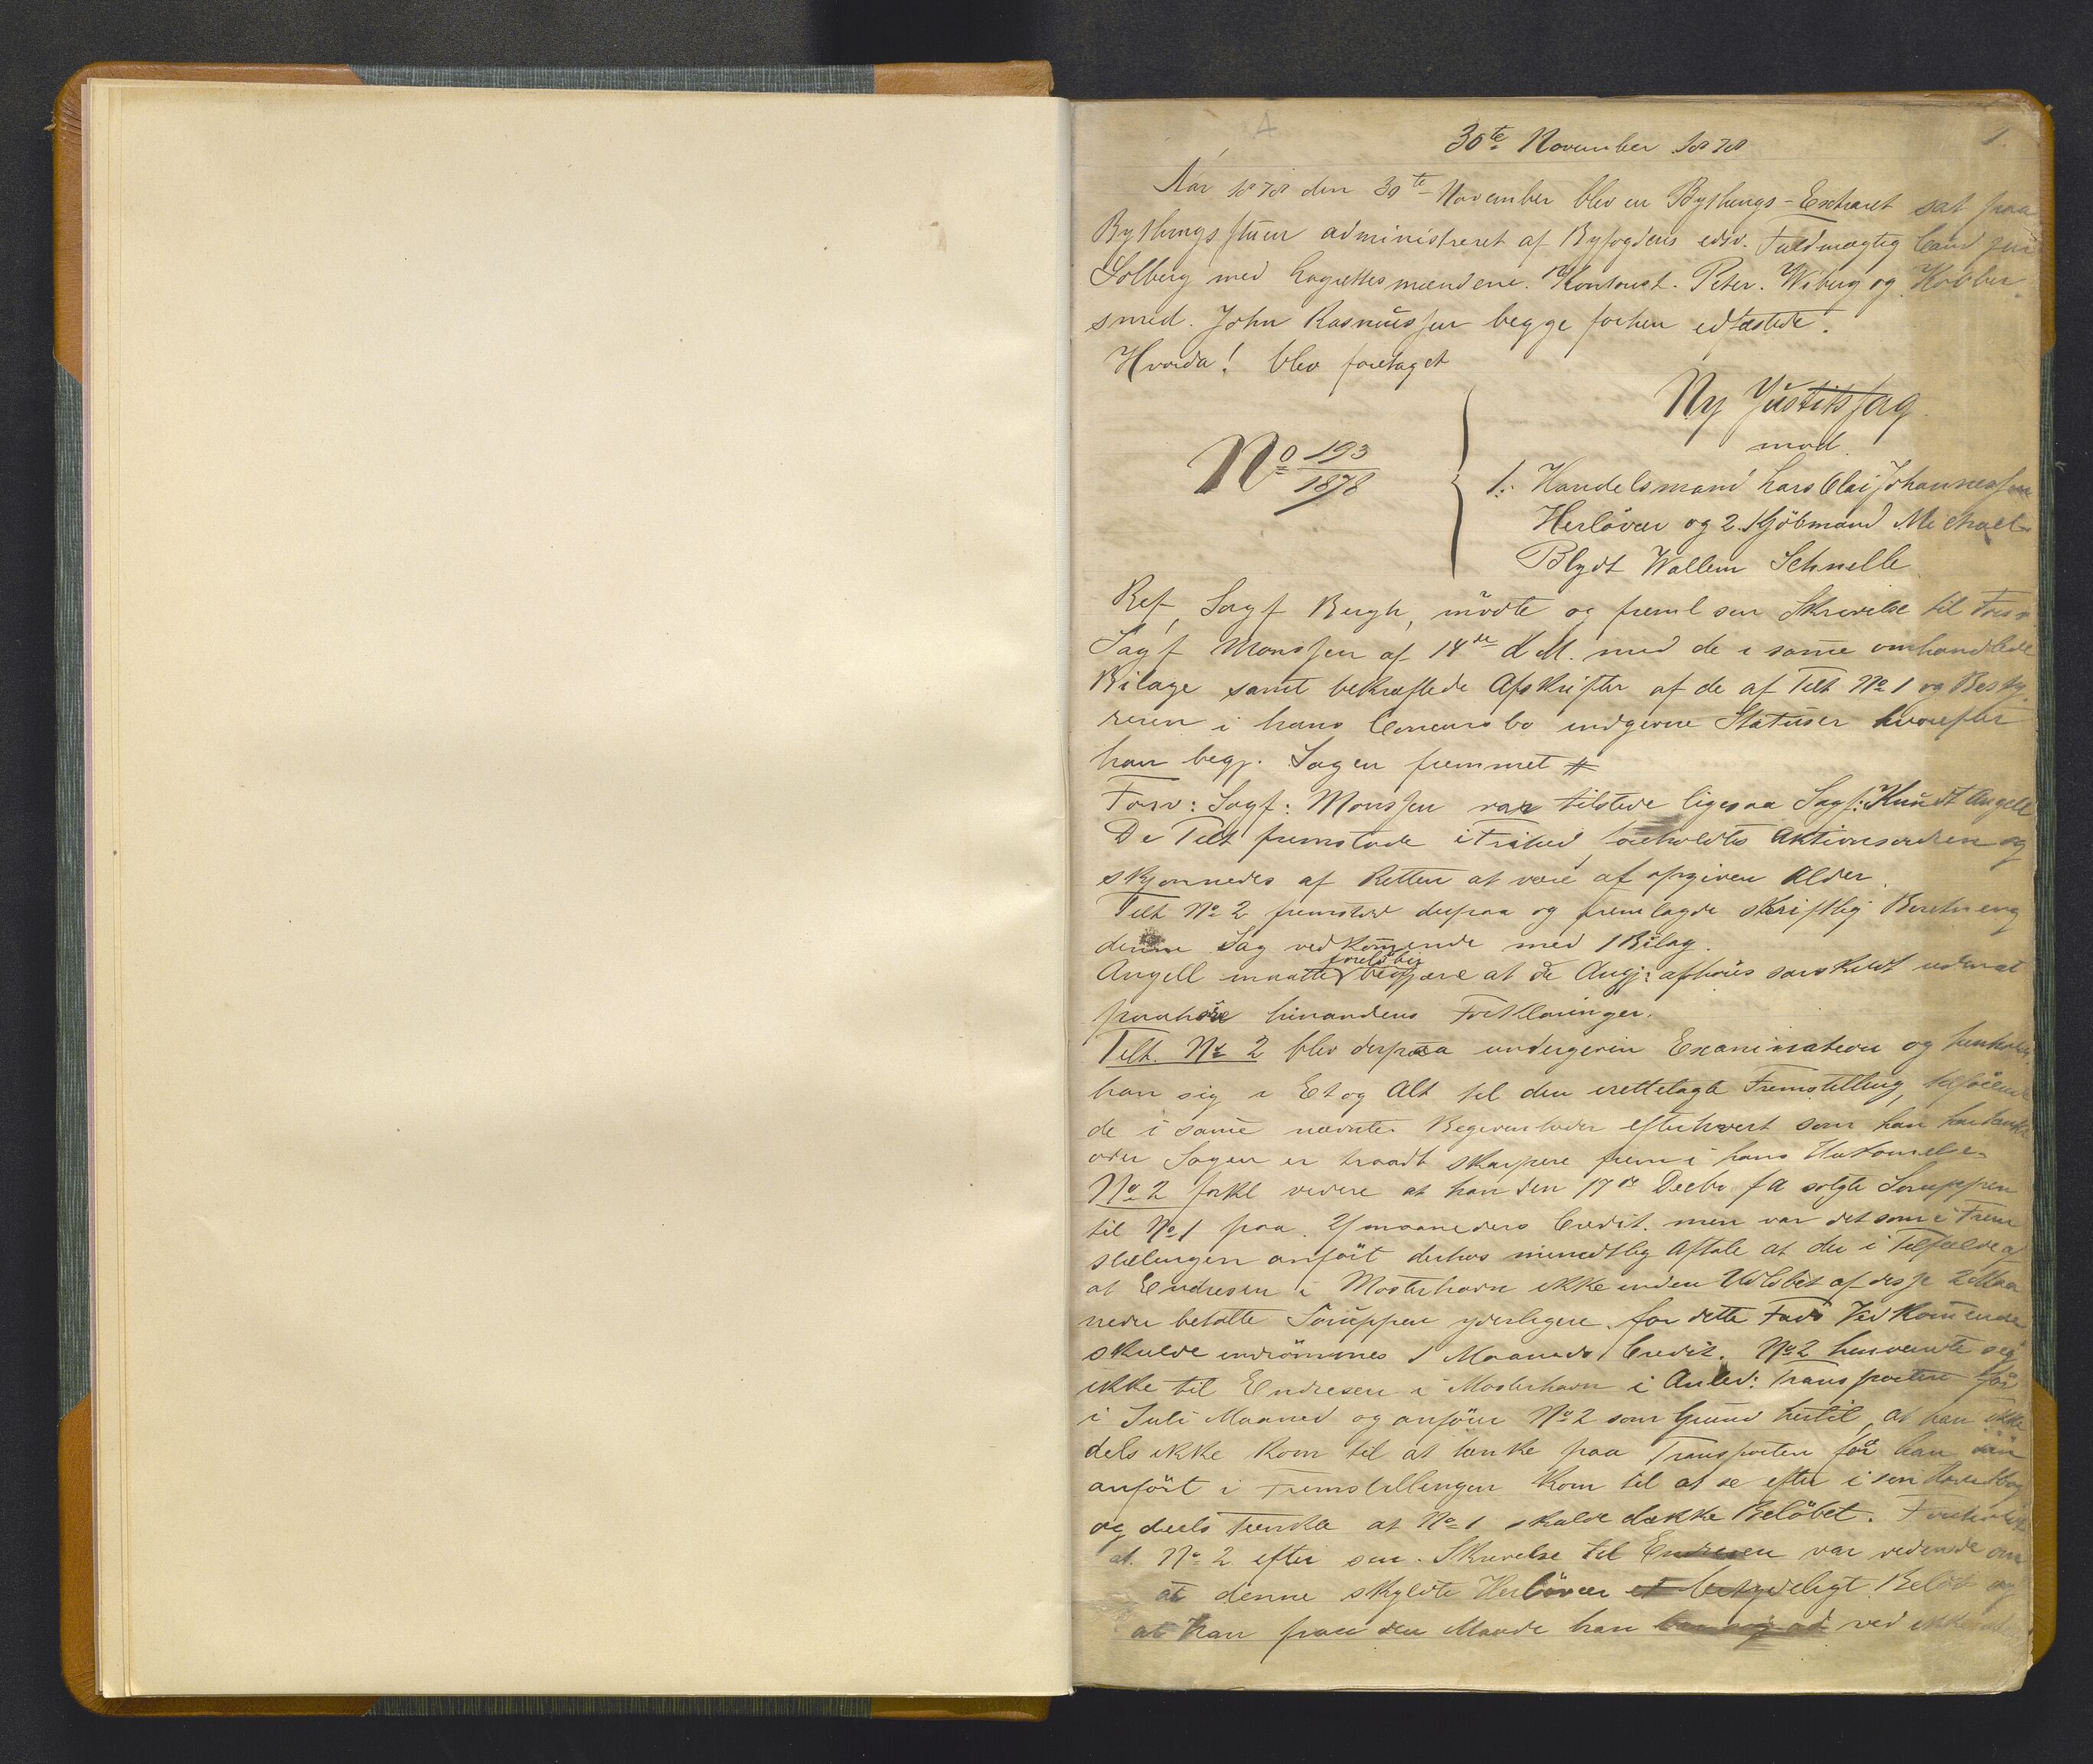 30te November 1878
1.
Aar 1878 den 30te November blev en Bythings-Extraret sat paa
Bythingsstuen administreret af Byfogdens edsv. Fuldmægtig Cand jur
Solberg med Lagrettesmændene. Kontorist. Peter. Wiberg og Kobber
smed. John Rasmussen begge forhen edfæstede.
Hvorda! blev foretaget
Ny Justitssag
mod
No 193/1878
1. Handelsmand Lars Olai Johannessen
Herløvær og 2. Kjöbmand Michael
Blydt Wallem Schnelle
Ref, Sagf Bergh, mödte og freml sin Skrivelse til Forsv
Sagf Monssen af 14de d M. med de i same omhandlede
Bilage samt bekræftede Afskrifter af de af Tilt No 1 og Besty
reren i hans Concursbo indgivne Statuser hvorefter
han begj. Sagen fremmet #
Forsv: Sagf: Monssen var tilstede ligesaa Sagf: Knudt Angell
De Tilt fremstode i Frihed, foreholdtes Aktionsordren og
skjønnedes af Retten at være af opgiven Alder.
Tilt No 2 fremstod derpaa og fremlagde skriftlig Beretning
denne Sag vedkomende med 1 Bilag.
Angell maatte foreløbig begjære at de Angj: afhøres særskildt uden at
paahøre hinandens Forklaringer.
Tilt. No 2 blev derpaa undergiven Examination og henholdt
han sig i Et og Alt til den irettelagte Fremstilling, tilføiende
de i same nævnte Begivenheder efterhvert som han har tænkt
over Sagen er traadt skarpere frem i hans Hukomelse.
No 2 forkl videre at han den 17de Decbr f A solgte Sluppen
til No 1 paa 2 maaneders Credit. men var det som i Frem
stillingen anført derhos mundtlig Aftale at der i Tilfælde af
at Endresen i Mosterhavn ikke inden Udløbet af disse 2 Maa
neder betalte Sluppen yderligere for dette Fads Vedkomende
skulde indrømmes 1 Maaneds Credit. No 2 henvendte sig
ikke til Endresen i Mosterhavn i Anled: Transporten før
i Juli Maaned og anfører No 2 som Grund hertil, at han ikke
dels ikke kom til at tænke paa Transporten før han som
anført i Fremstillingen kom til at se efter i sin Hovedbog
og deels tænkte at No 1 skulde dække Beløbet. Foreholdt
at No 2 efter sin Skrivelse til Endresen var vidende om
at denne skyldte Herløvær et betydeligt Beløb og
at han paa den Maade han bar sig ad ved ikke